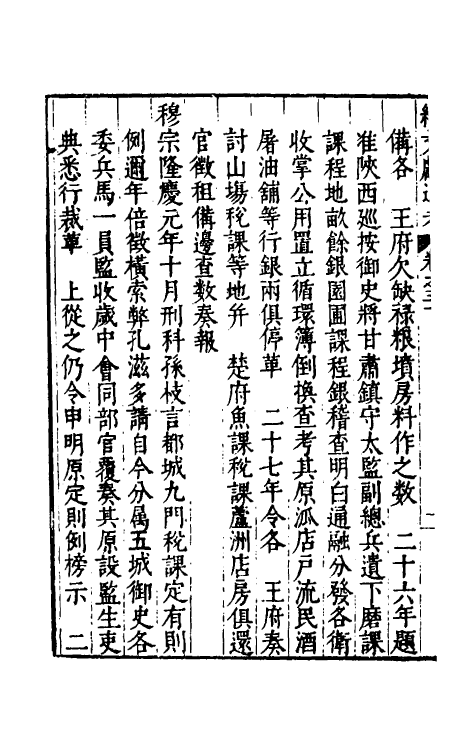 備各　王府欠缺祿粮墳房料作之數　二十六年題
准陜西廵按御史將甘肅鎮守太監副總兵遺下磨課
課程地畝餘銀園圃課程銀稽查明白通融分發各衛
收掌公用置立循環簿倒換查考其原派店戶流民酒
屠油舖等行銀兩俱停革　二十七年令各　王府奏
討山塲稅課等地并　楚府魚課稅課蘆洲店房俱還
官徵租備邊查數奏報
穆宗隆慶元年十月刑科孫枝言都城九門稅課定有則
例邇年倍徵橫索弊孔滋多請自今分屬五城御史各
委兵馬一員監收歲中會同部官覆奏其原設監生吏
典悉行裁革　上從之仍令申明原定則例榜示　二